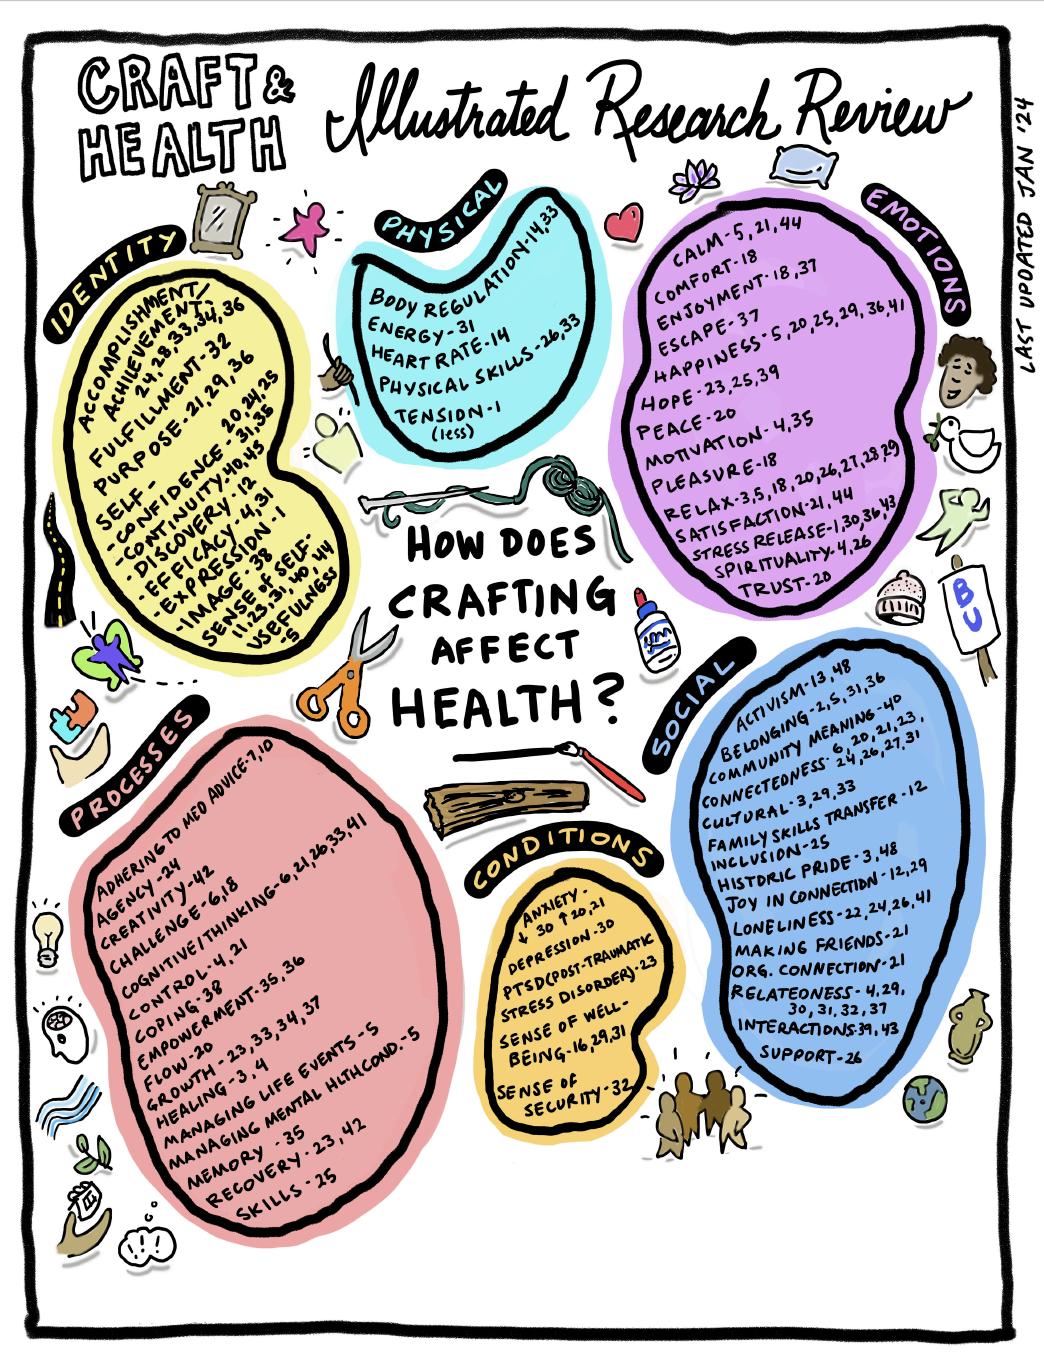 CRAFT &
HEALTH
Illustrated Research Review
LAST UPDATED JAN '24
IDENTITY
ACCOMPLISHMENT/
ACHIEVEMENT-
24,28,33,34,36
FULFILLMENT-32
PURPOSE-21,29,36
SELF-
-CONFIDENCE- 20,24,25
31,35
-CONTINUITY-40,45
-DISCOVERY-12
-EFFICACY-4,31
-EXPRESSION-1
-IMAGE-38
SENSE OF SELF-
11,23,31,40,44
USEFULNESS
-5
PHYSICAL
BODY REGULATION-14,33
ENERGY-31
HEART RATE-14
PHYSICAL SKILLS-26,33
TENSION-1
(less)
EMOTIONS
CALM-5,21,44
COMFORT-18
ENJOYMENT-18,37
ESCAPE-37
HAPPINESS-5,20,25,29,36,41
HOPE-23,25,39
PEACE-20
MOTIVATION-4,35
PLEASURE-18
RELAX-3,5,18,20,26,27,28,29
SATISFACTION-21,44
STRESS RELEASE-1,30,36,43
SPIRITUALITY-4,26
TRUST-20
BU
HOW DOES
CRAFTING
AFFECT
HEALTH?
PROCESSES
ADHERING TO MED ADVICE-7,10
AGENCY-24
CREATIVITY-42
CHALLENGE-6,18
COGNITIVE/THINKING-6,21,26,33,41
CONTROL-4,21
COPING-38
EMPOWERMENT-35,36
FLOW-20
GROWTH-23,33,34,37
HEALING-3,4
MANAGING LIFE EVENTS-5
MANAGING MENTAL HLTHCOND.-5
MEMORY -35
RECOVERY-23,42
SKILLS-25
!!!
CONDITIONS
ANXIETY-
↓ 30 ↑20,21
DEPRESSION-30
PTSD(POST-TRAUMATIC
STRESS DISORDER)-23
SENSE OF WELL-
BEING-16,29,31
SENSE OF
SECURITY-32
SOCIAL
ACTIVISM-13,48
BELONGING-2,5,31,36
COMMUNITY MEANING-40
CONNECTEDNESS- 6,20,21,23,
24,26,27,31
CULTURAL-3,29,33
FAMILY SKILLS TRANSFER-12
INCLUSION-25
HISTORIC PRIDE-3,48
JOY IN CONNECTION-12,29
LONELINESS-22,24,26,41
MAKING FRIENDS-21
ORG. CONNECTION-21
RELATEDNESS-4,29,
30,31,32,37
INTERACTIONS-39,43
SUPPORT-26